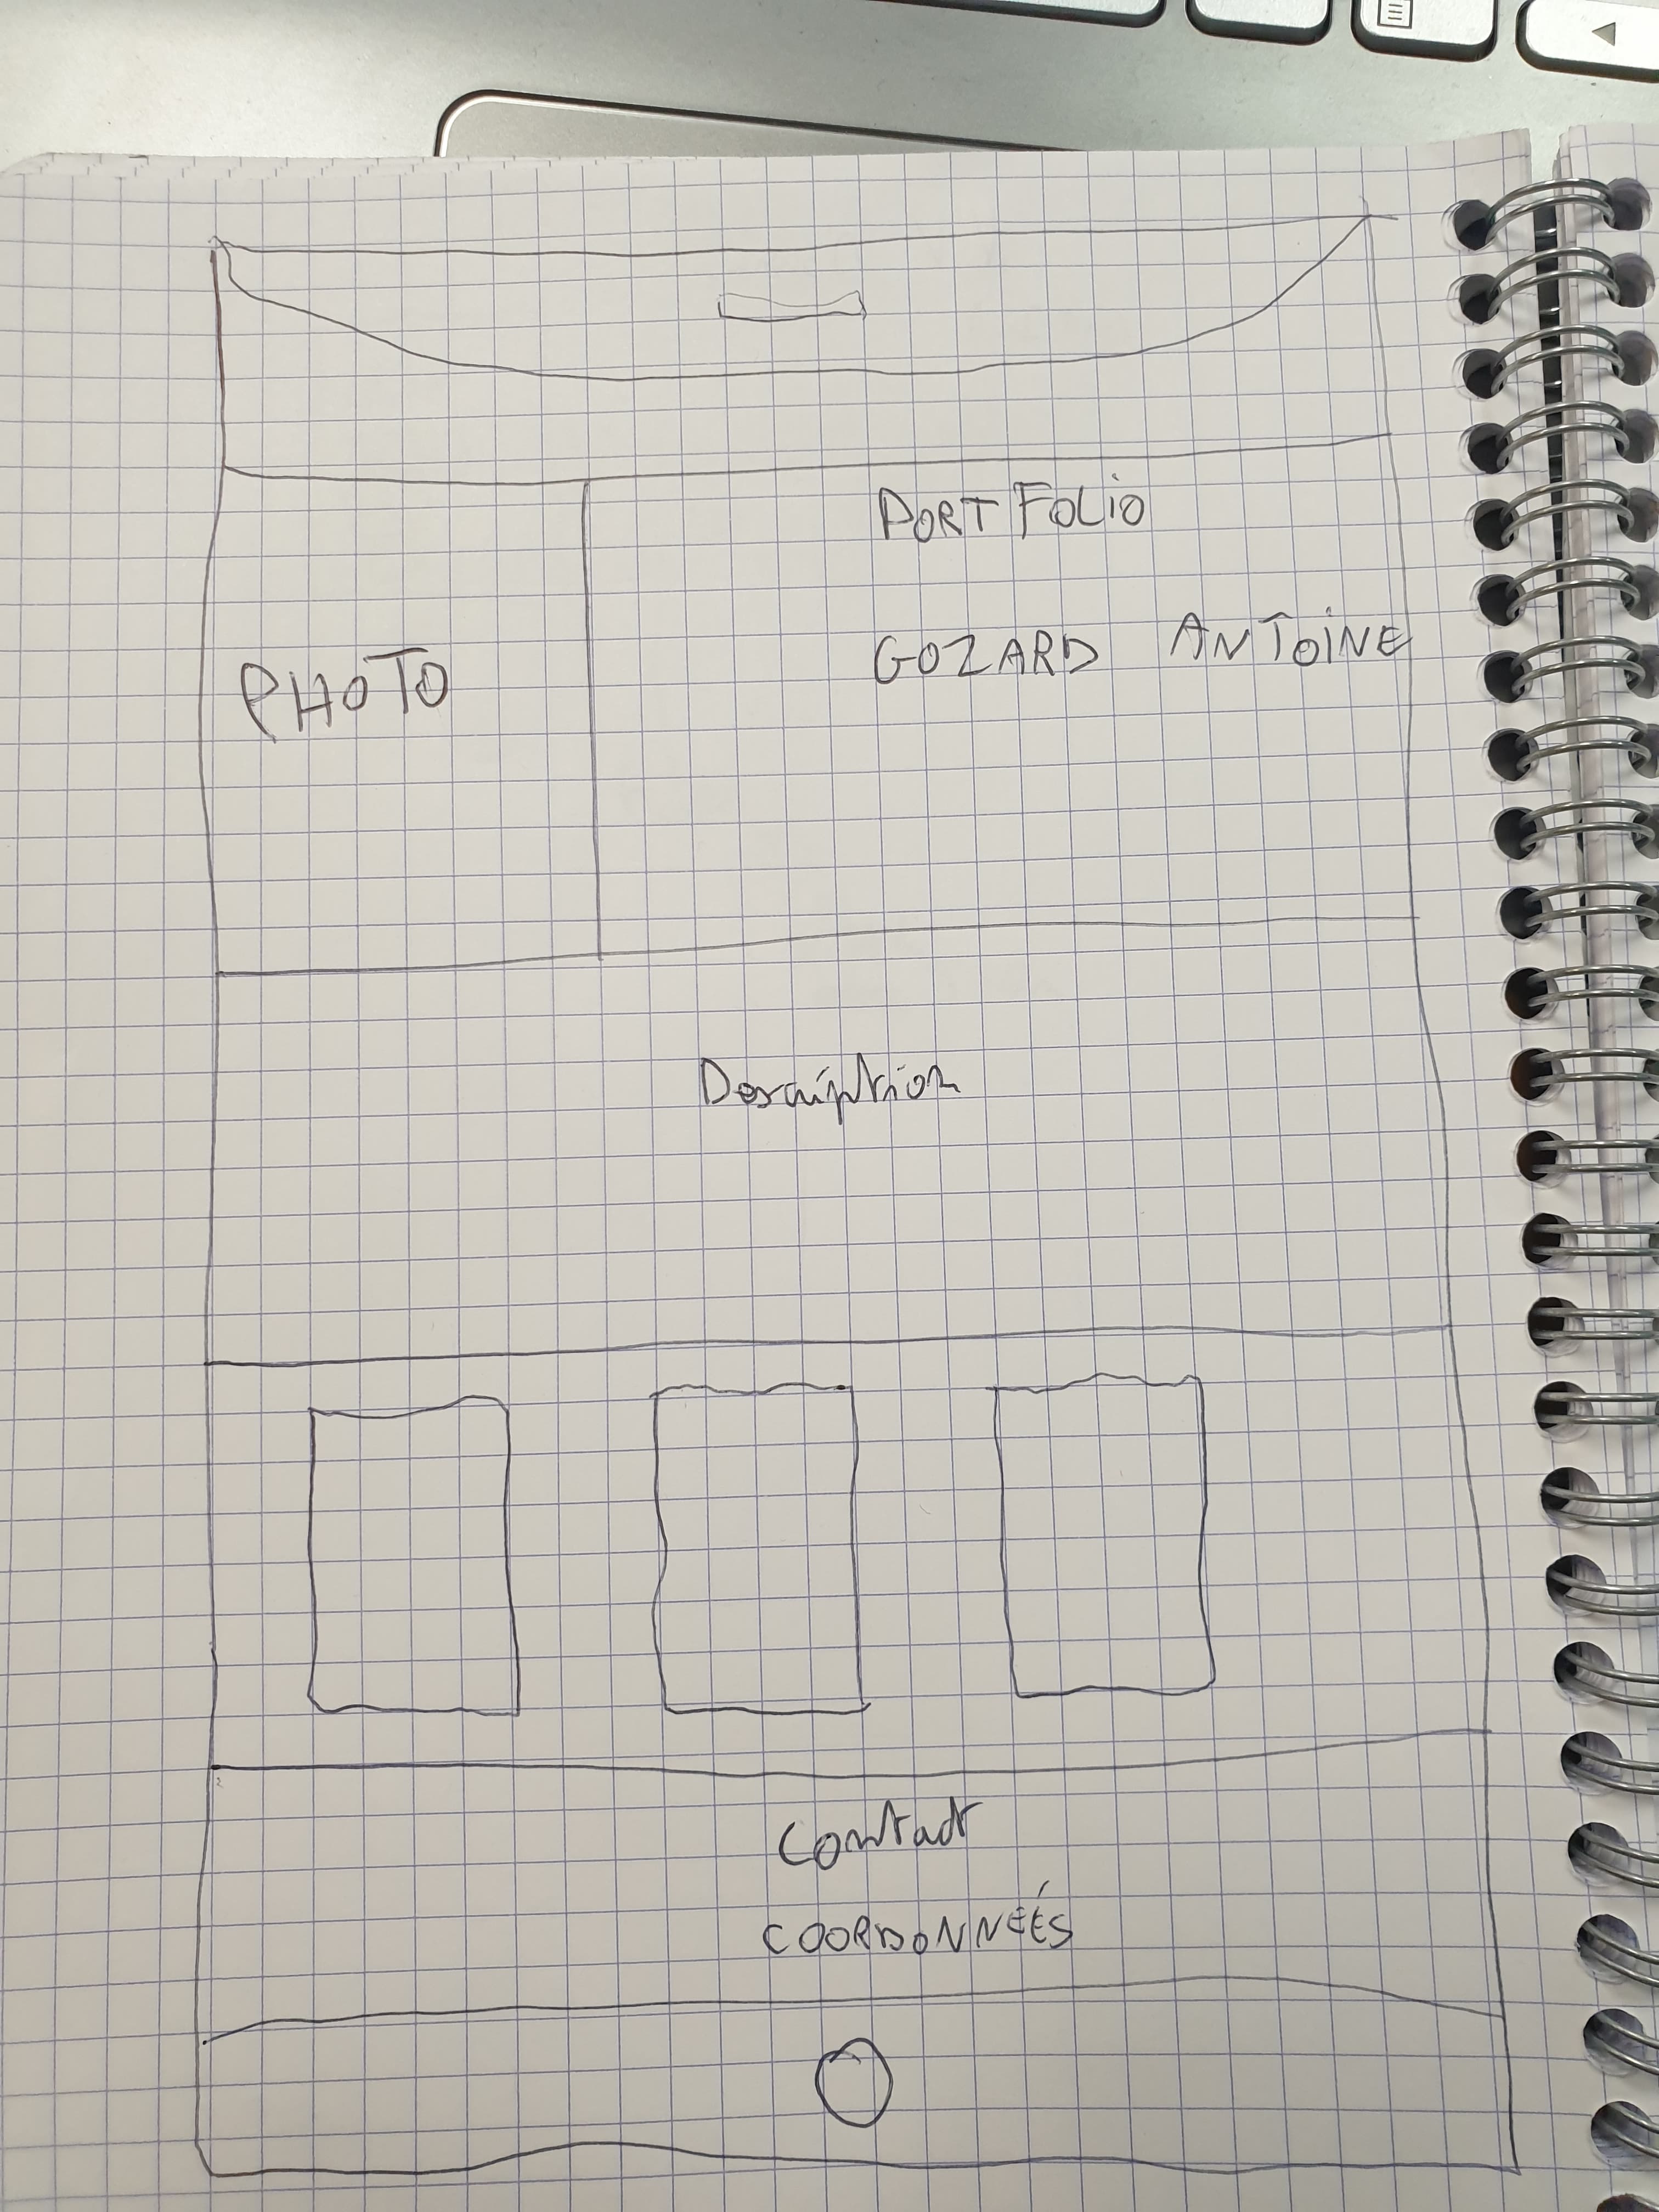 PORTFOLIO
GOZARD ANTOINE
PHOTO
Description
Contact
COORDONNÉES